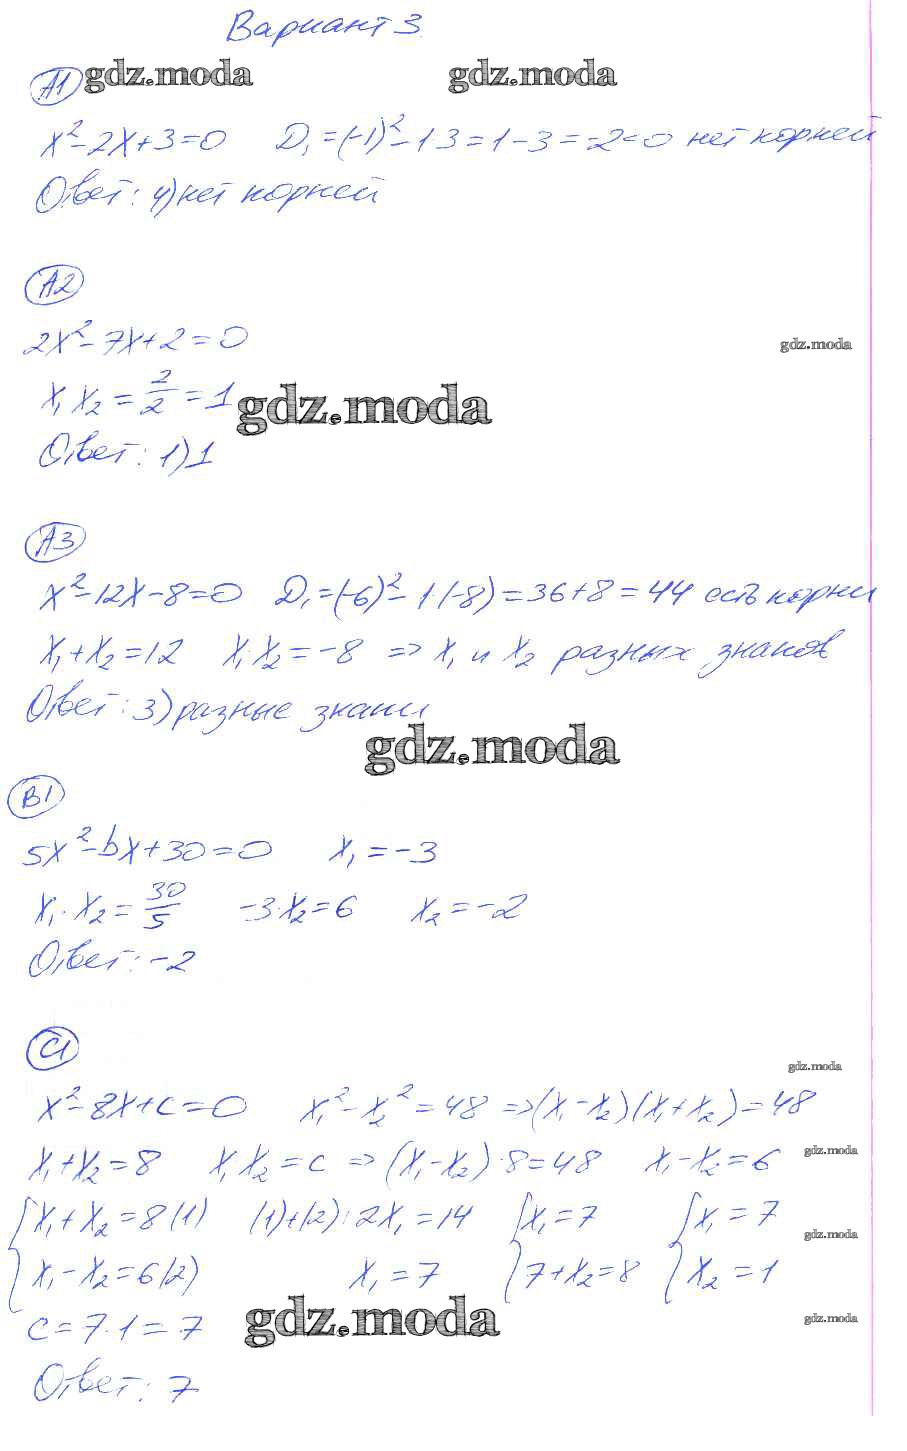 Вариант 3
А1 gdz.moda gdz.moda
x²-2x+3=0 D₁=(-1)²-1·3=1-3=-2<0 нет корней
Ответ: 4) нет корней
А2
2x²-7x+2=0
gdz.moda
x₁x₂=2/2=1
gdz.moda
Ответ: 1) 1
А3
x²-12x-8=0 D₁=(-6)²-1·(-8)=36+8=44 есть корни
x₁+x₂=12 x₁x₂=-8 => x₁ и x₂ разных знаков
Ответ: 3) разные знаки
gdz.moda
В1
5x²-bx+30=0 x₁=-3
x₁·x₂=30/5 -3·x₂=6 x₂=-2
Ответ: -2
С1
gdz.moda
x²-8x+c=0 x₁²-x₂²=48 =>(x₁-x₂)(x₁+x₂)=48
x₁+x₂=8 x₁x₂=c => (x₁-x₂)·8=48 x₁-x₂=6 gdz.moda
{x₁+x₂=8 (1) (1)+(2): 2x₁=14 {x₁=7 {x₁=7
gdz.moda
{x₁-x₂=6 (2) x₁=7 {7+x₂=8 {x₂=1
c=7·1=7 gdz.moda gdz.moda
Ответ: 7